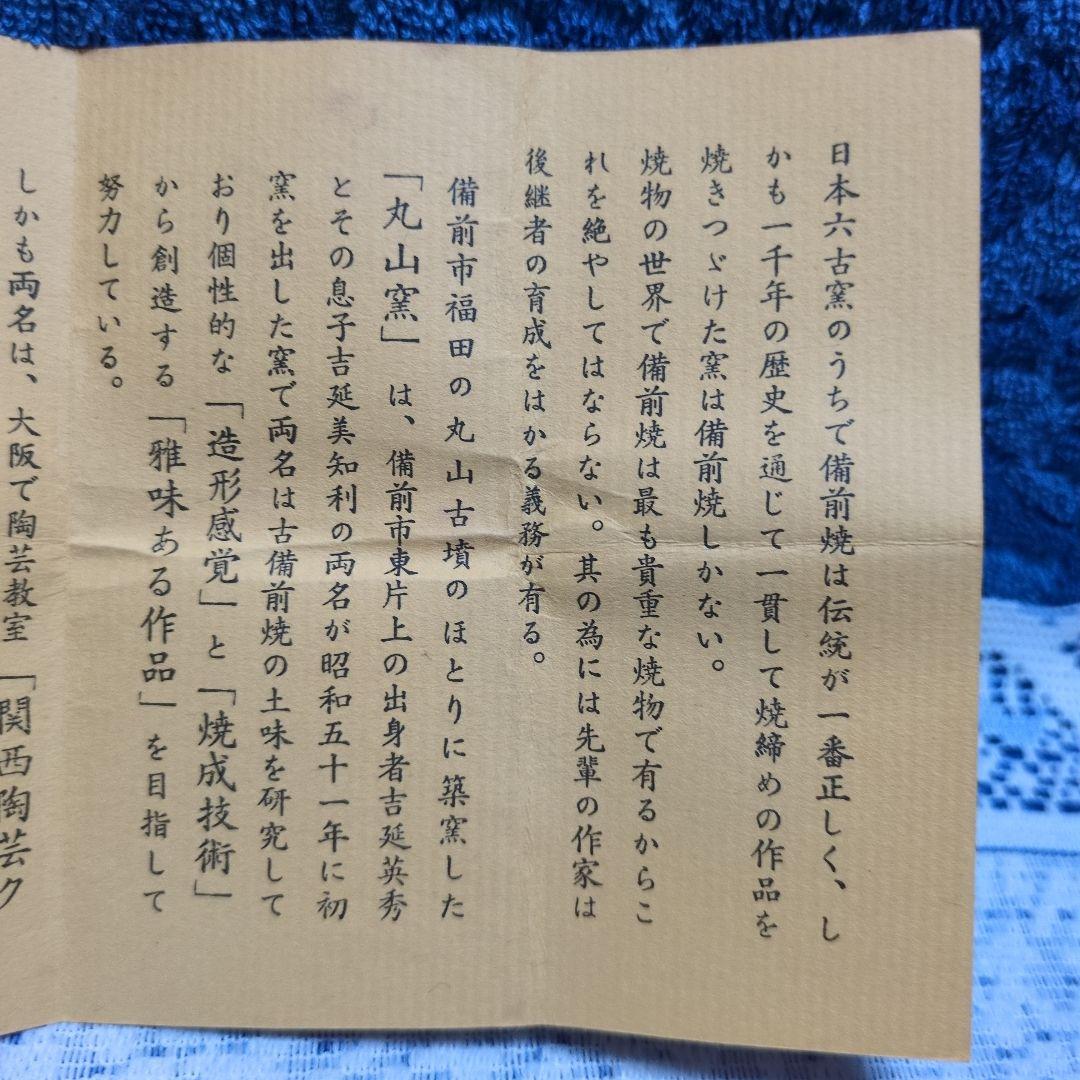 日本六古窯のうちで備前焼は伝統が一番正しく、し
かも一千年の歴史を通じて一貫して焼締めの作品を
焼きつゞけた窯は備前焼しかない。
焼物の世界で備前焼は最も貴重な焼物で有るからこ
れを絶やしてはならない。其の為には先輩の作家は
後継者の育成をはかる義務が有る。
備前市福田の丸山古墳のほとりに築窯した
「丸山窯」は、備前市東片上の出身者吉延英秀
とその息子吉延美知利の両名が昭和五十一年に初
窯を出した窯で両名は古備前焼の土味を研究して
おり個性的な「造形感覚」と「焼成技術」
から創造する「雅味ある作品」を目指して
努力している。
しかも両名は、大阪で陶芸教室「関西陶芸ク